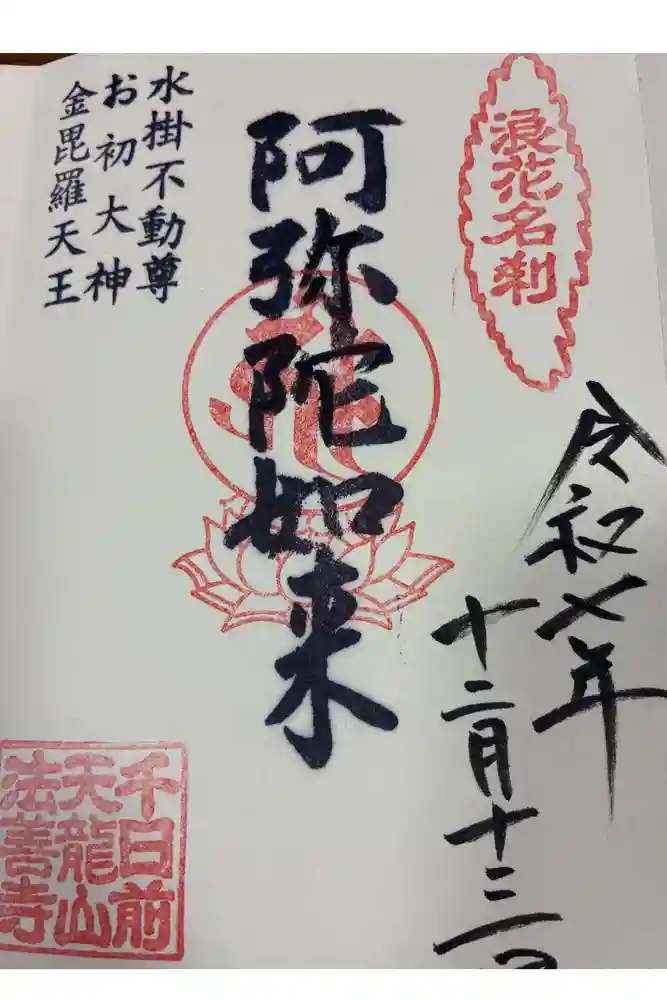 浪花名刹
令和七年
十二月十三日
阿弥陀如来
水掛不動尊
お初大神
金毘羅天王
千日前
天龍山
法善寺